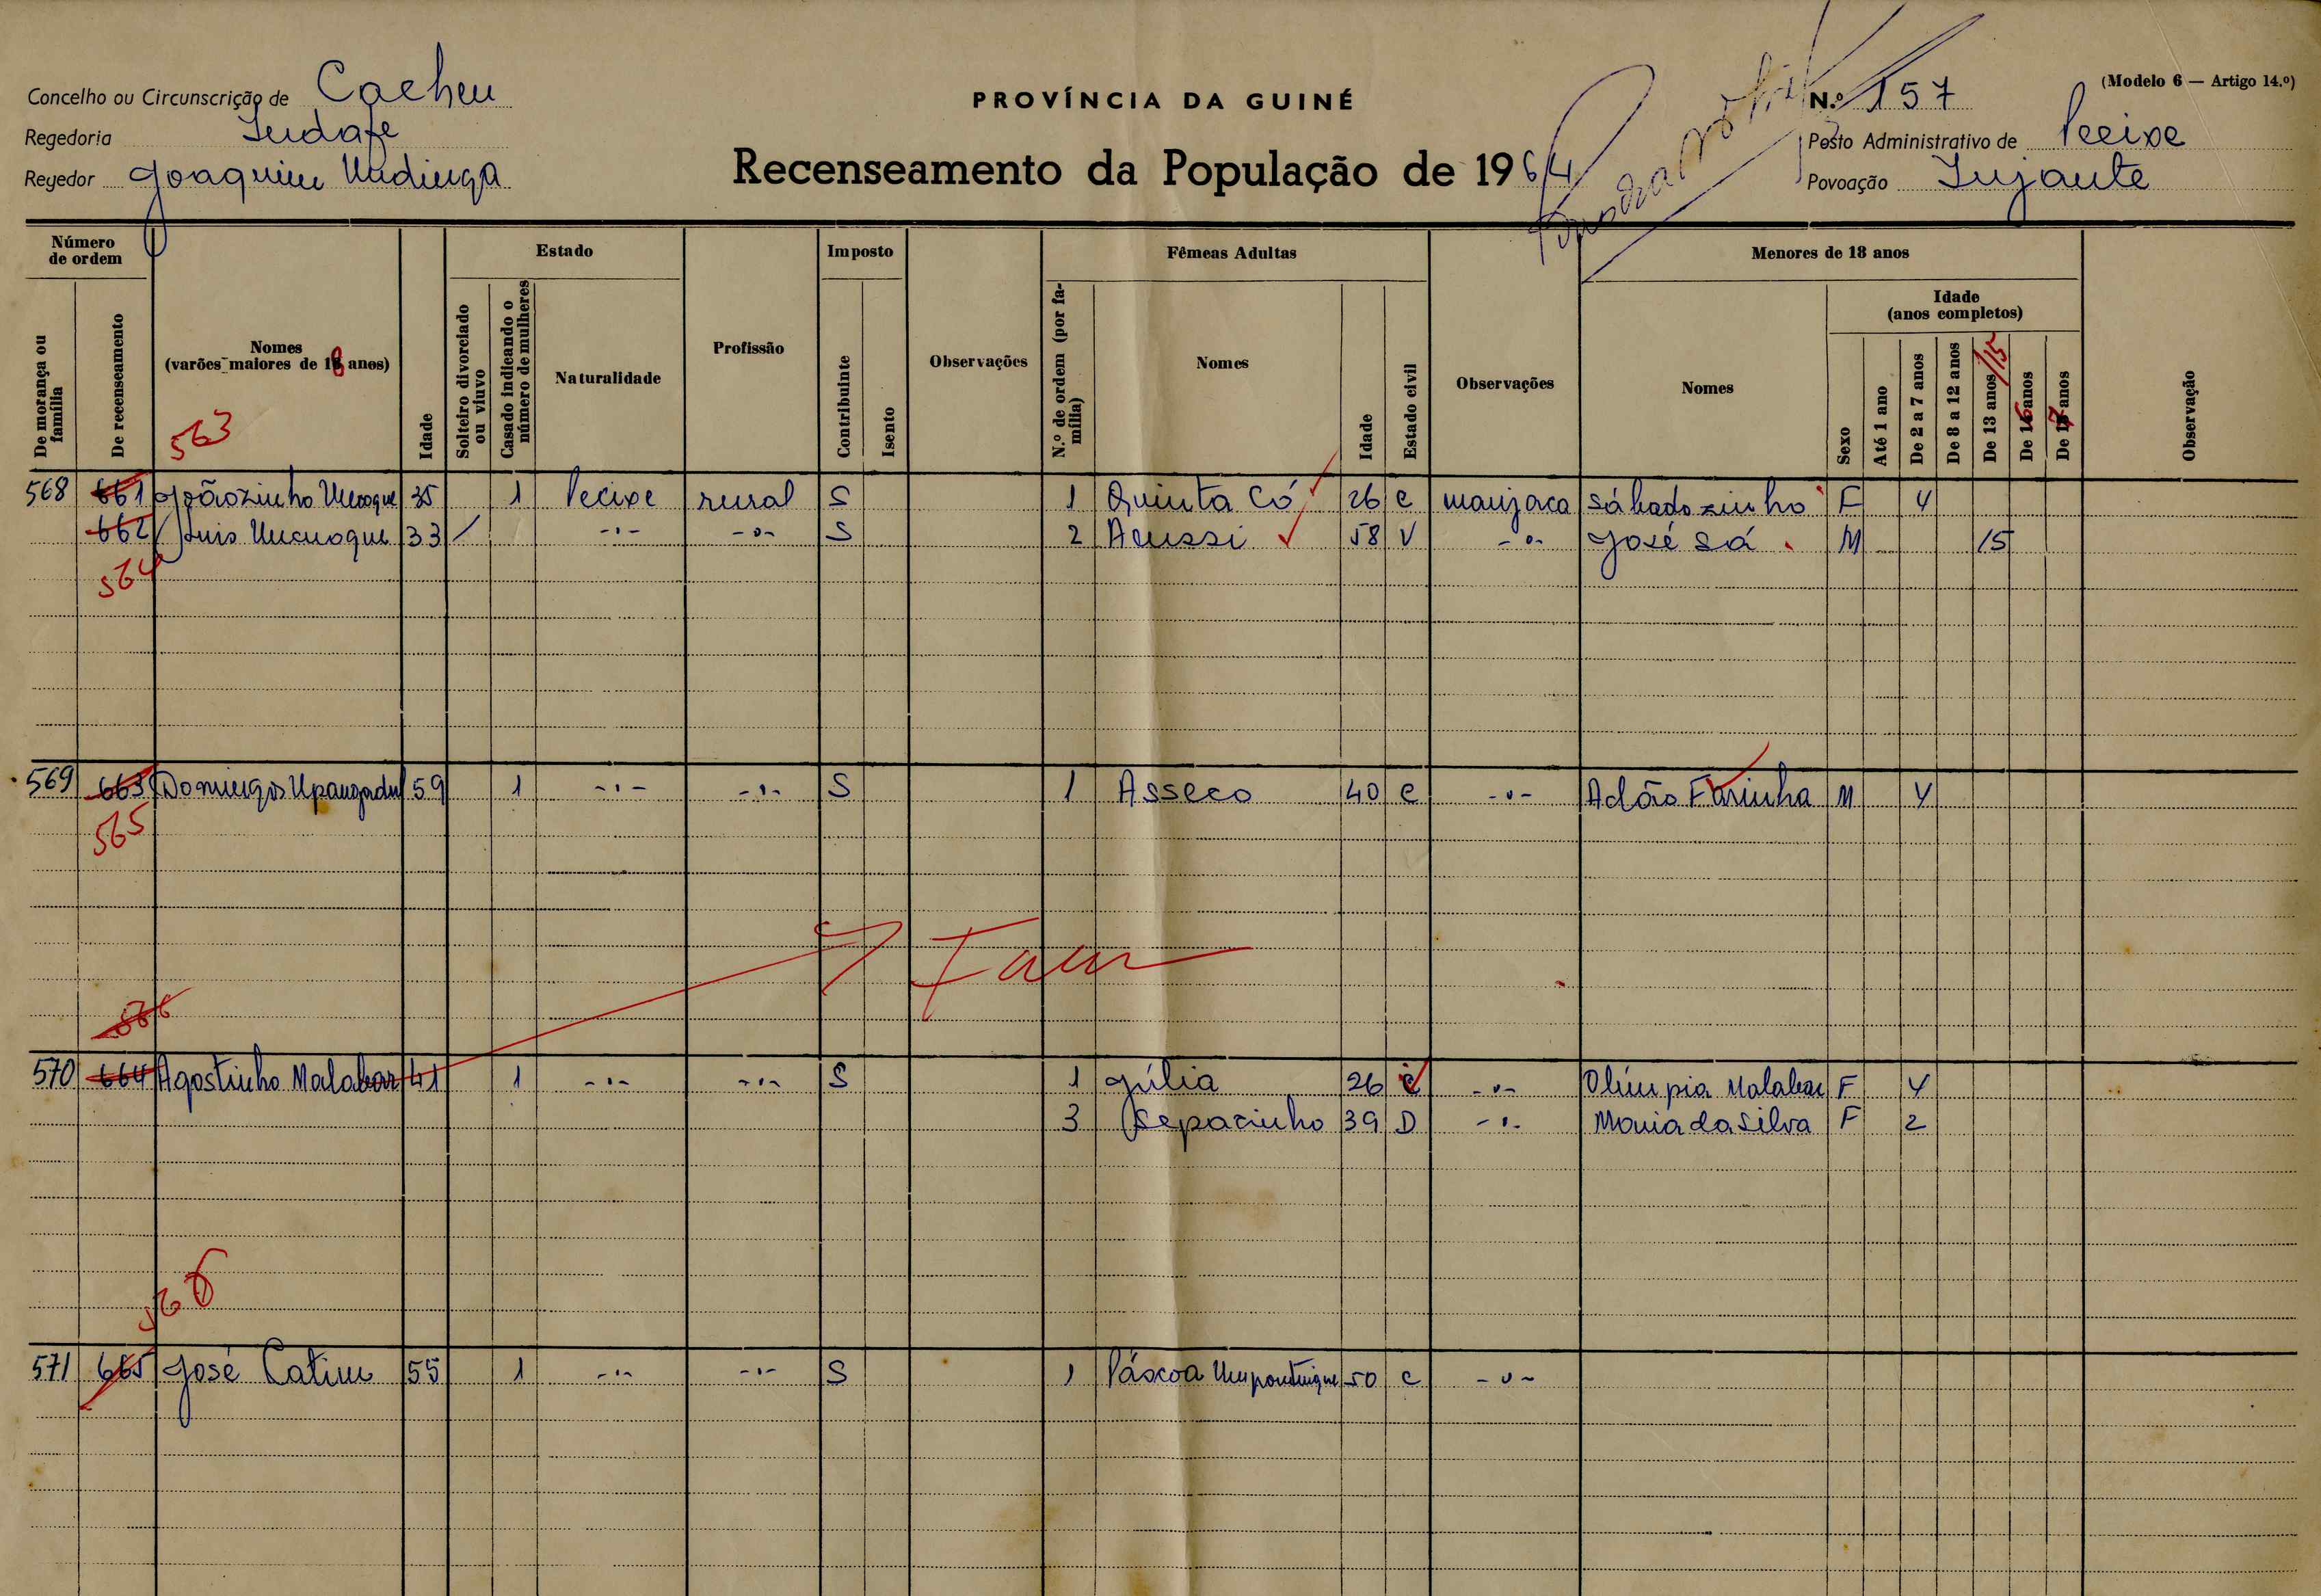 (Modelo 6 — Artigo 14.º)
Concelho ou Circunscrição de Cacheu
PROVÍNCIA DA GUINÉ
N.º 157
Regedoria
Posto Administrativo de Pecixe
Regedor Joaquim
Recenseamento da População de 1964
Povoação Jujante
Número de ordem
Estado
Imposto
Fêmeas Adultas
Menores de 18 anos
De morança ou família
De recenseamento
Nomes
(varões maiores de 18 anos)
Idade
Solteiro divorciado ou viuvo
Casado indicando o número de mulheres
Naturalidade
Profissão
Contribuinte
Isento
Observações
N.º de ordem (por família)
Nomes
Idade
Estado civil
Observações
Nomes
Sexo
Idade
(anos completos)
Até 1 ano
De 2 a 7 anos
De 8 a 12 anos
De 13 anos /15
De 16 anos
De 17 anos
Observação
563
568 661 Joãozinho 35 1 Pecixe rural S 1 Quinta Có 26 c manjaca Sábadozinho F 4
662 Luis 33 / -"- -"- S 2 Acussi 58 V -"- José Sá M 15
564
569 663 Domingos Upangadu 59 1 -"- -"- S 1 Asseco 40 c -"- Adão Farinha M 4
565
566
570 664 Agostinho Malabar 41 1 -"- -"- S 1 Júlia 26 c -"- Olímpia Malabar F 4
3 Sepacinho 39 D -"- Maria da Silva F 2
566
571 665 José Catim 55 1 -"- -"- S 1 Páscoa 50 c -"-